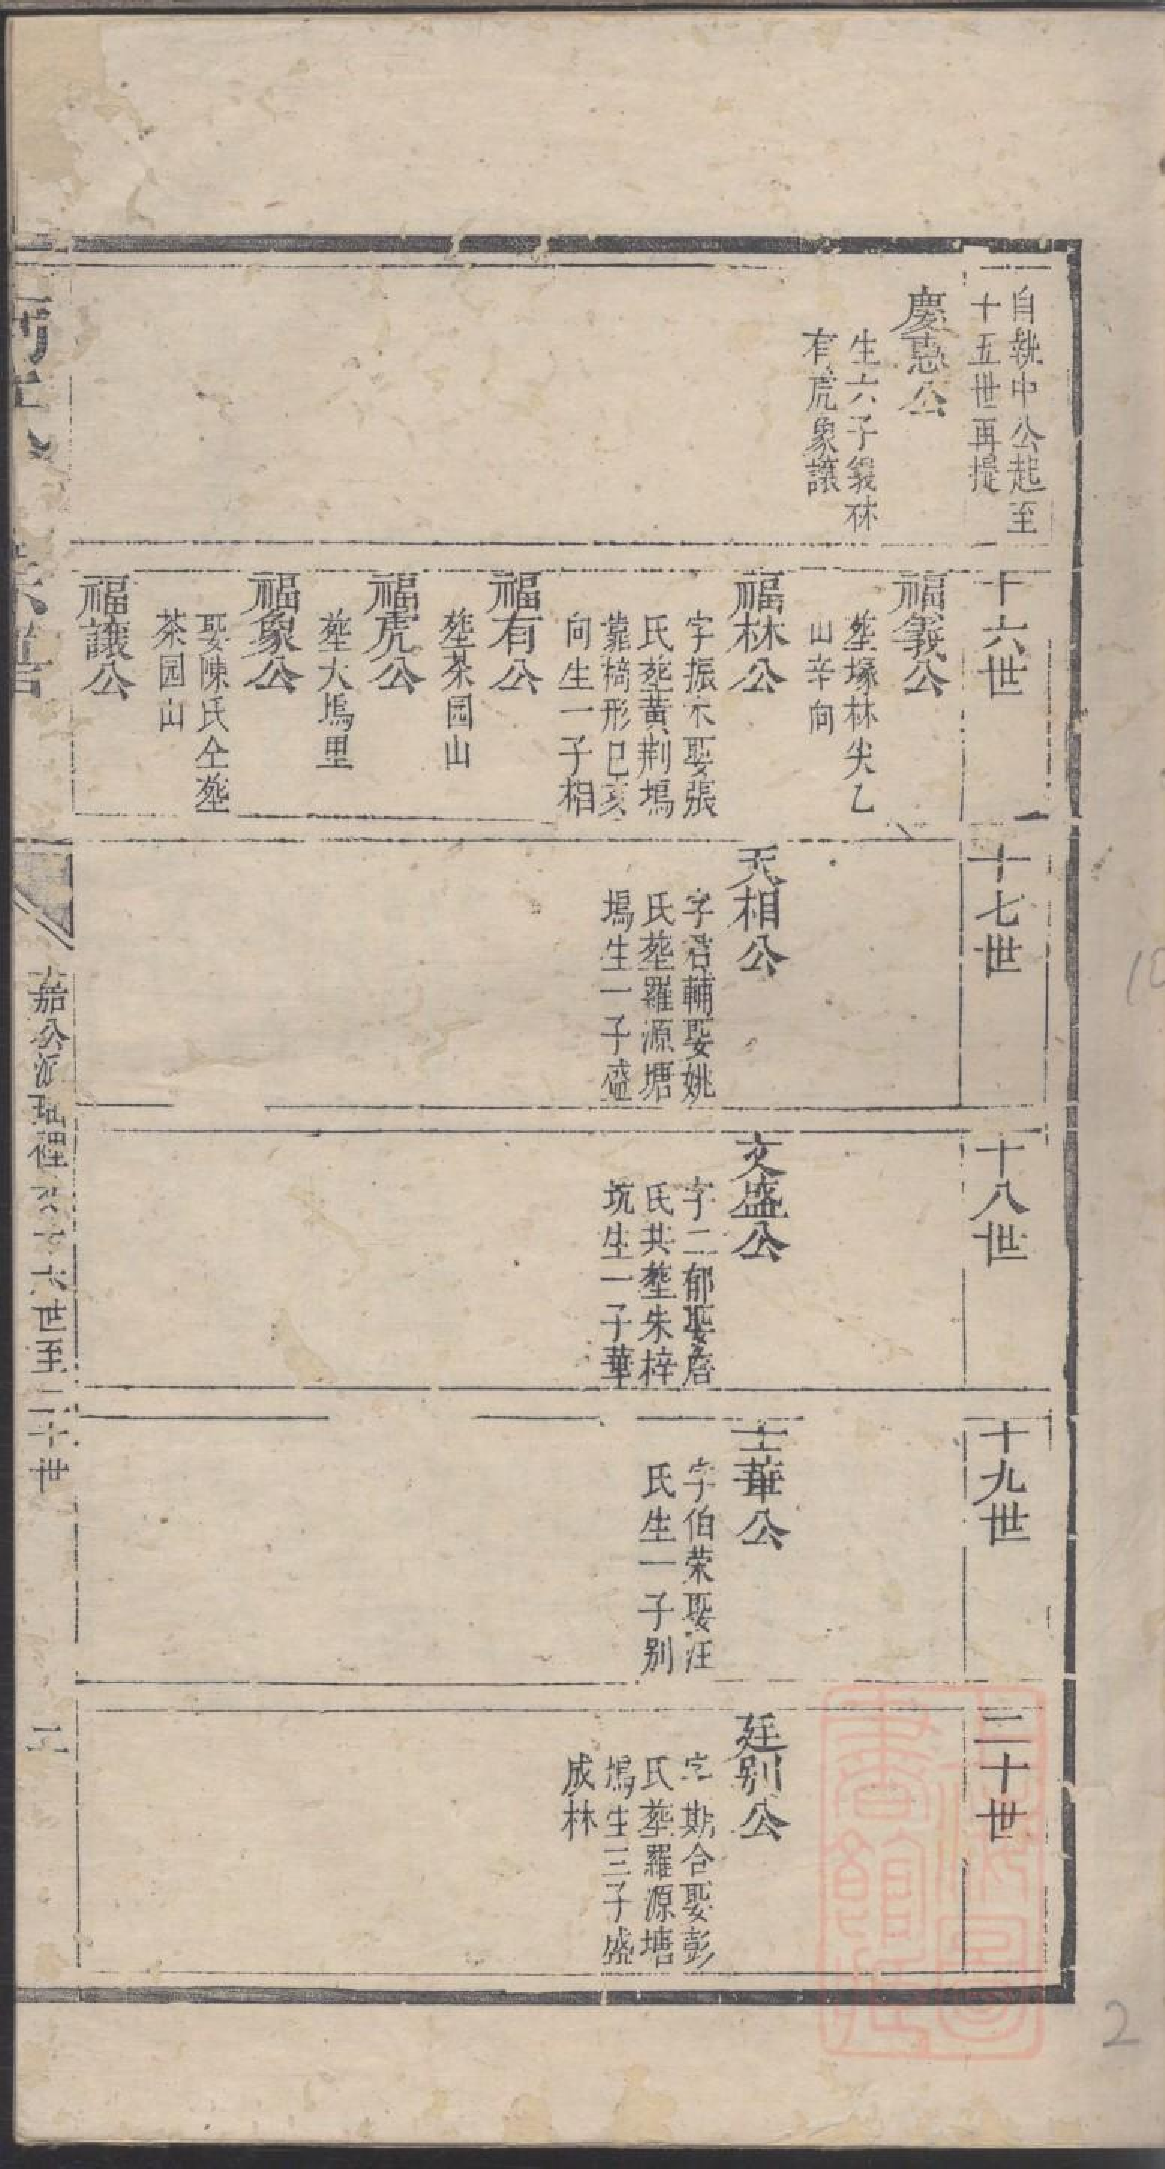 自執中公起至
十五世再提
慶惠公
生六子義林
有虎象讓
十六世
福義公
塟塚林尖乙
山辛向
福林公
字振宗娶張
氏塟黃荆塢
靠椅形巳亥
向生一子相
福有公
塟茶园山
福虎公
塟大塢里
福象公
娶陳氏仝塟
茶园山
福讓公
十七世
天相公
字君輔娶姚
氏塟羅源塘
塢生一子盛
十八世
文盛公
字二郁娶唐
氏共塟朱梓
坑生一子華
十九世
士華公
字伯荣娶汪
氏生一子别
二十世
廷别公
字斯合娶彭
氏塟羅源塘
塢生三子盛
成林
嘉公派 裡 十六世至二十世
二
2
10